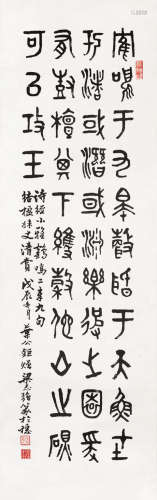 鶴鳴于九皋聲聞于天魚在
于渚或潛在淵樂彼之園爰
有樹檀其下維榖他山之石
可以攻玉
詩經小雅鶴鳴二章九句
清賞 戊辰